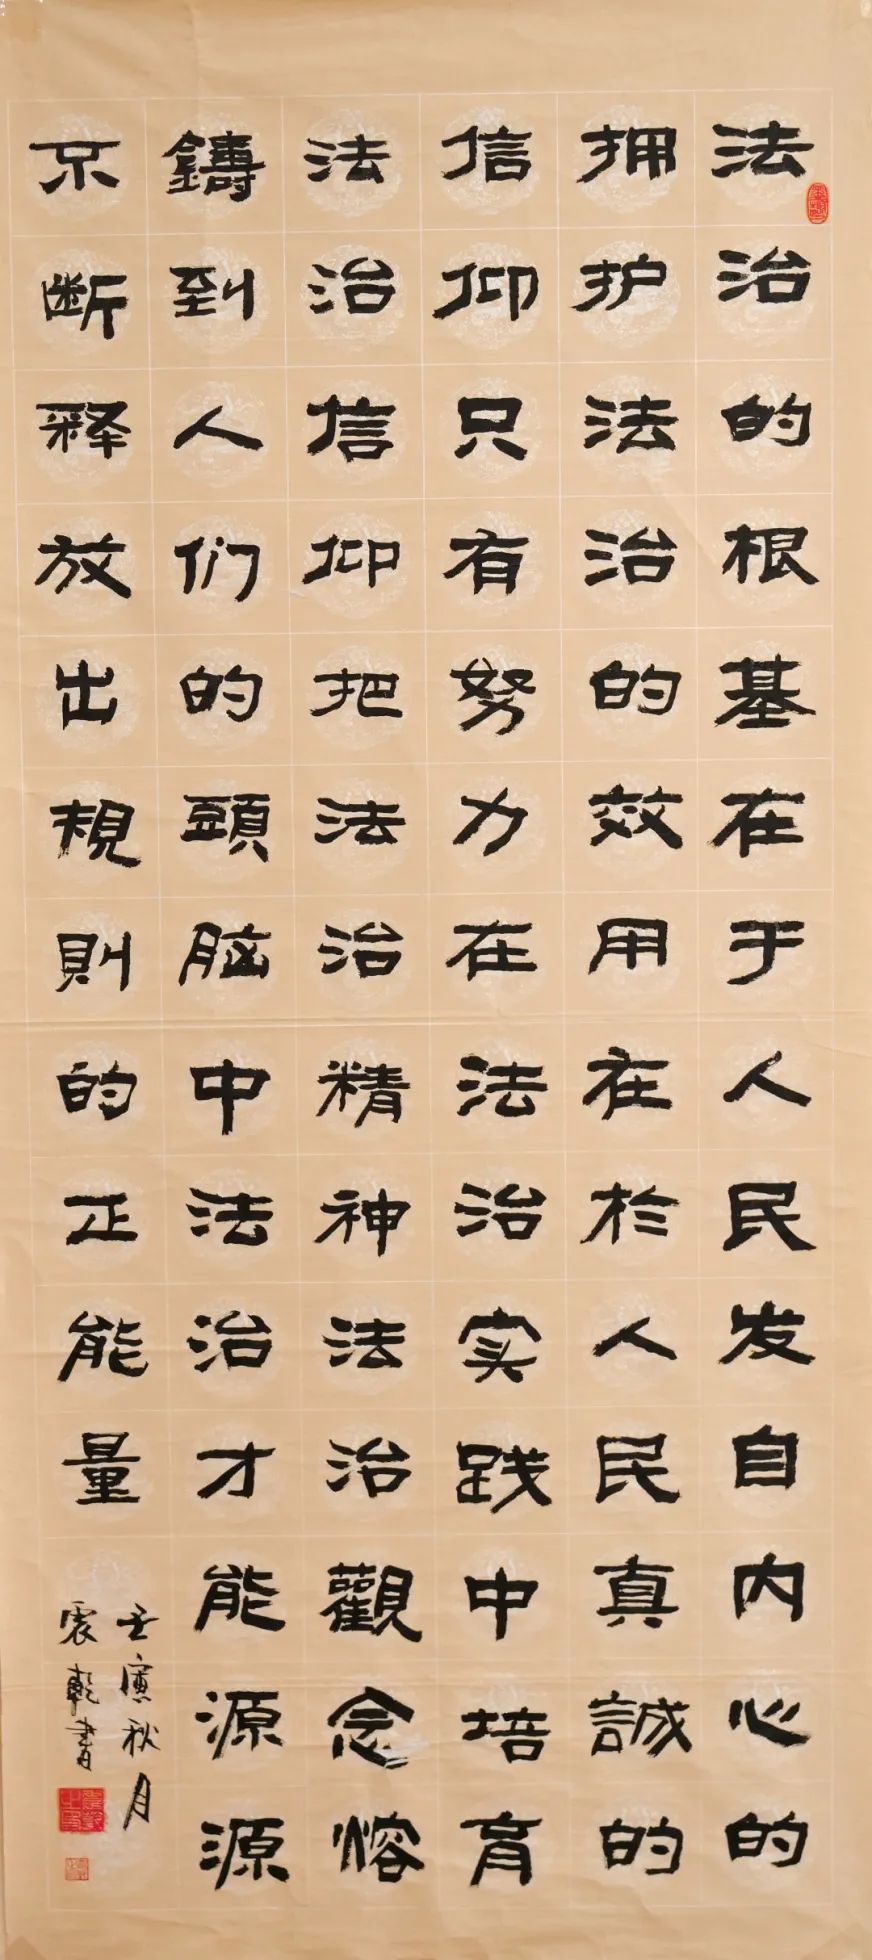 法治的根基在于人民发自内心的
拥护法治的效用在於人民真誠的
信仰只有努力在法治实践中培育
法治信仰把法治精神法治觀念熔
鑄到人们的頭脑中法治才能源源
不断释放出規則的正能量
壬寅秋月
震乾書